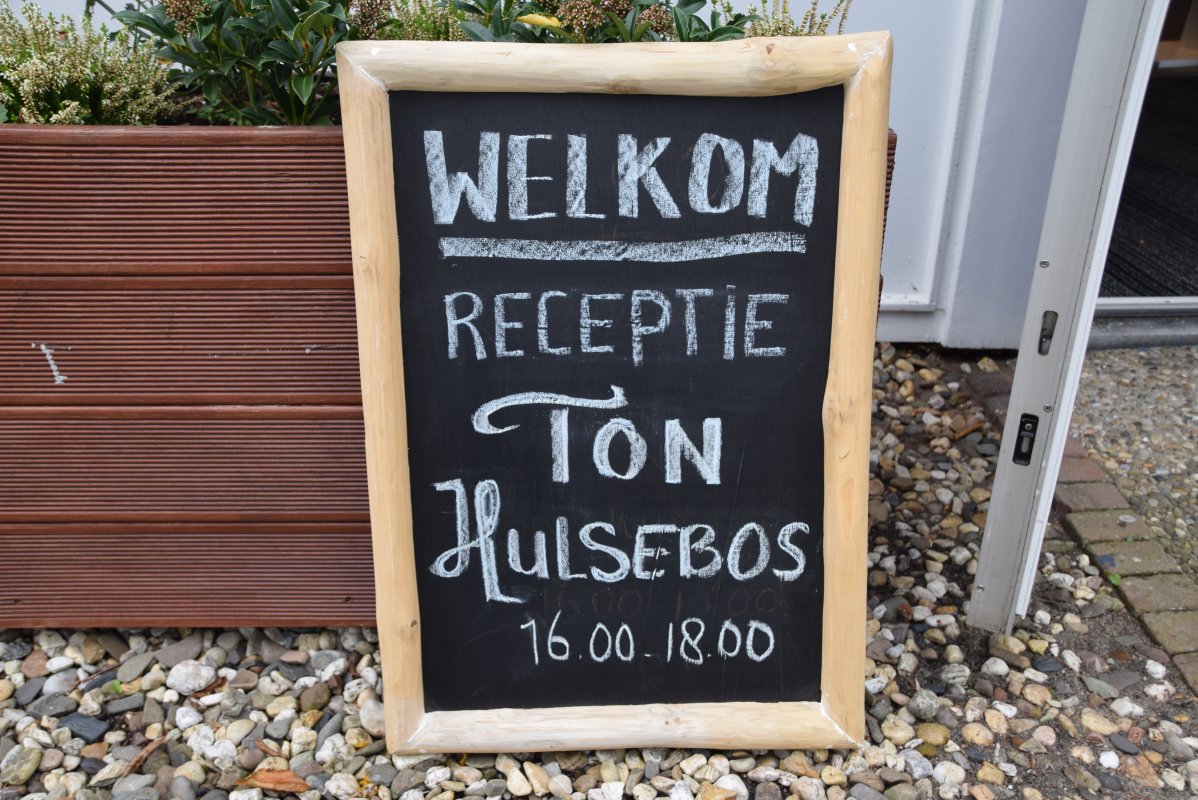 WELKOM
RECEPTIE
TON
HULSEBOS
16.00-18.00